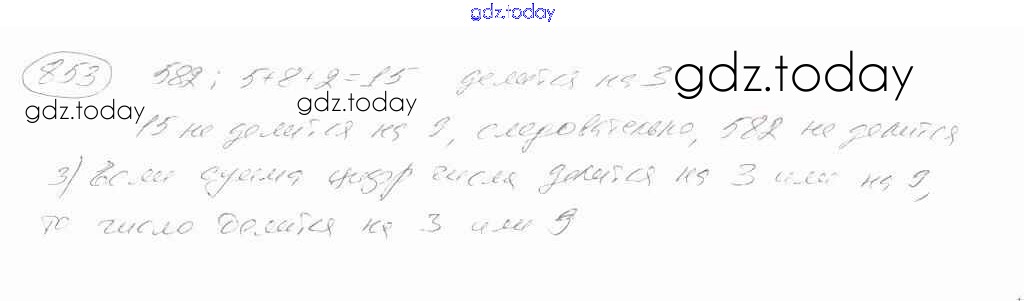 gdz.today
853 582; 5+8+2=15 делится на 3
gdz.today
gdz.today
gdz.today
15 не делится на 9, следовательно, 582 не делится
3) Если сумма цифр числа делится на 3 или на 9,
то число делится на 3 или 9